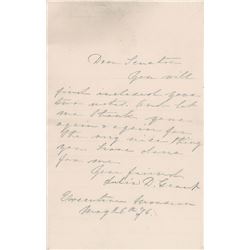 Dear Senator
You will
find inclosed your
two notes. And let
me thank you
again & again for
the very nice thing
you have done
for me
Your friend
Julia D. Grant
Executive Mansion
May 6th 76.